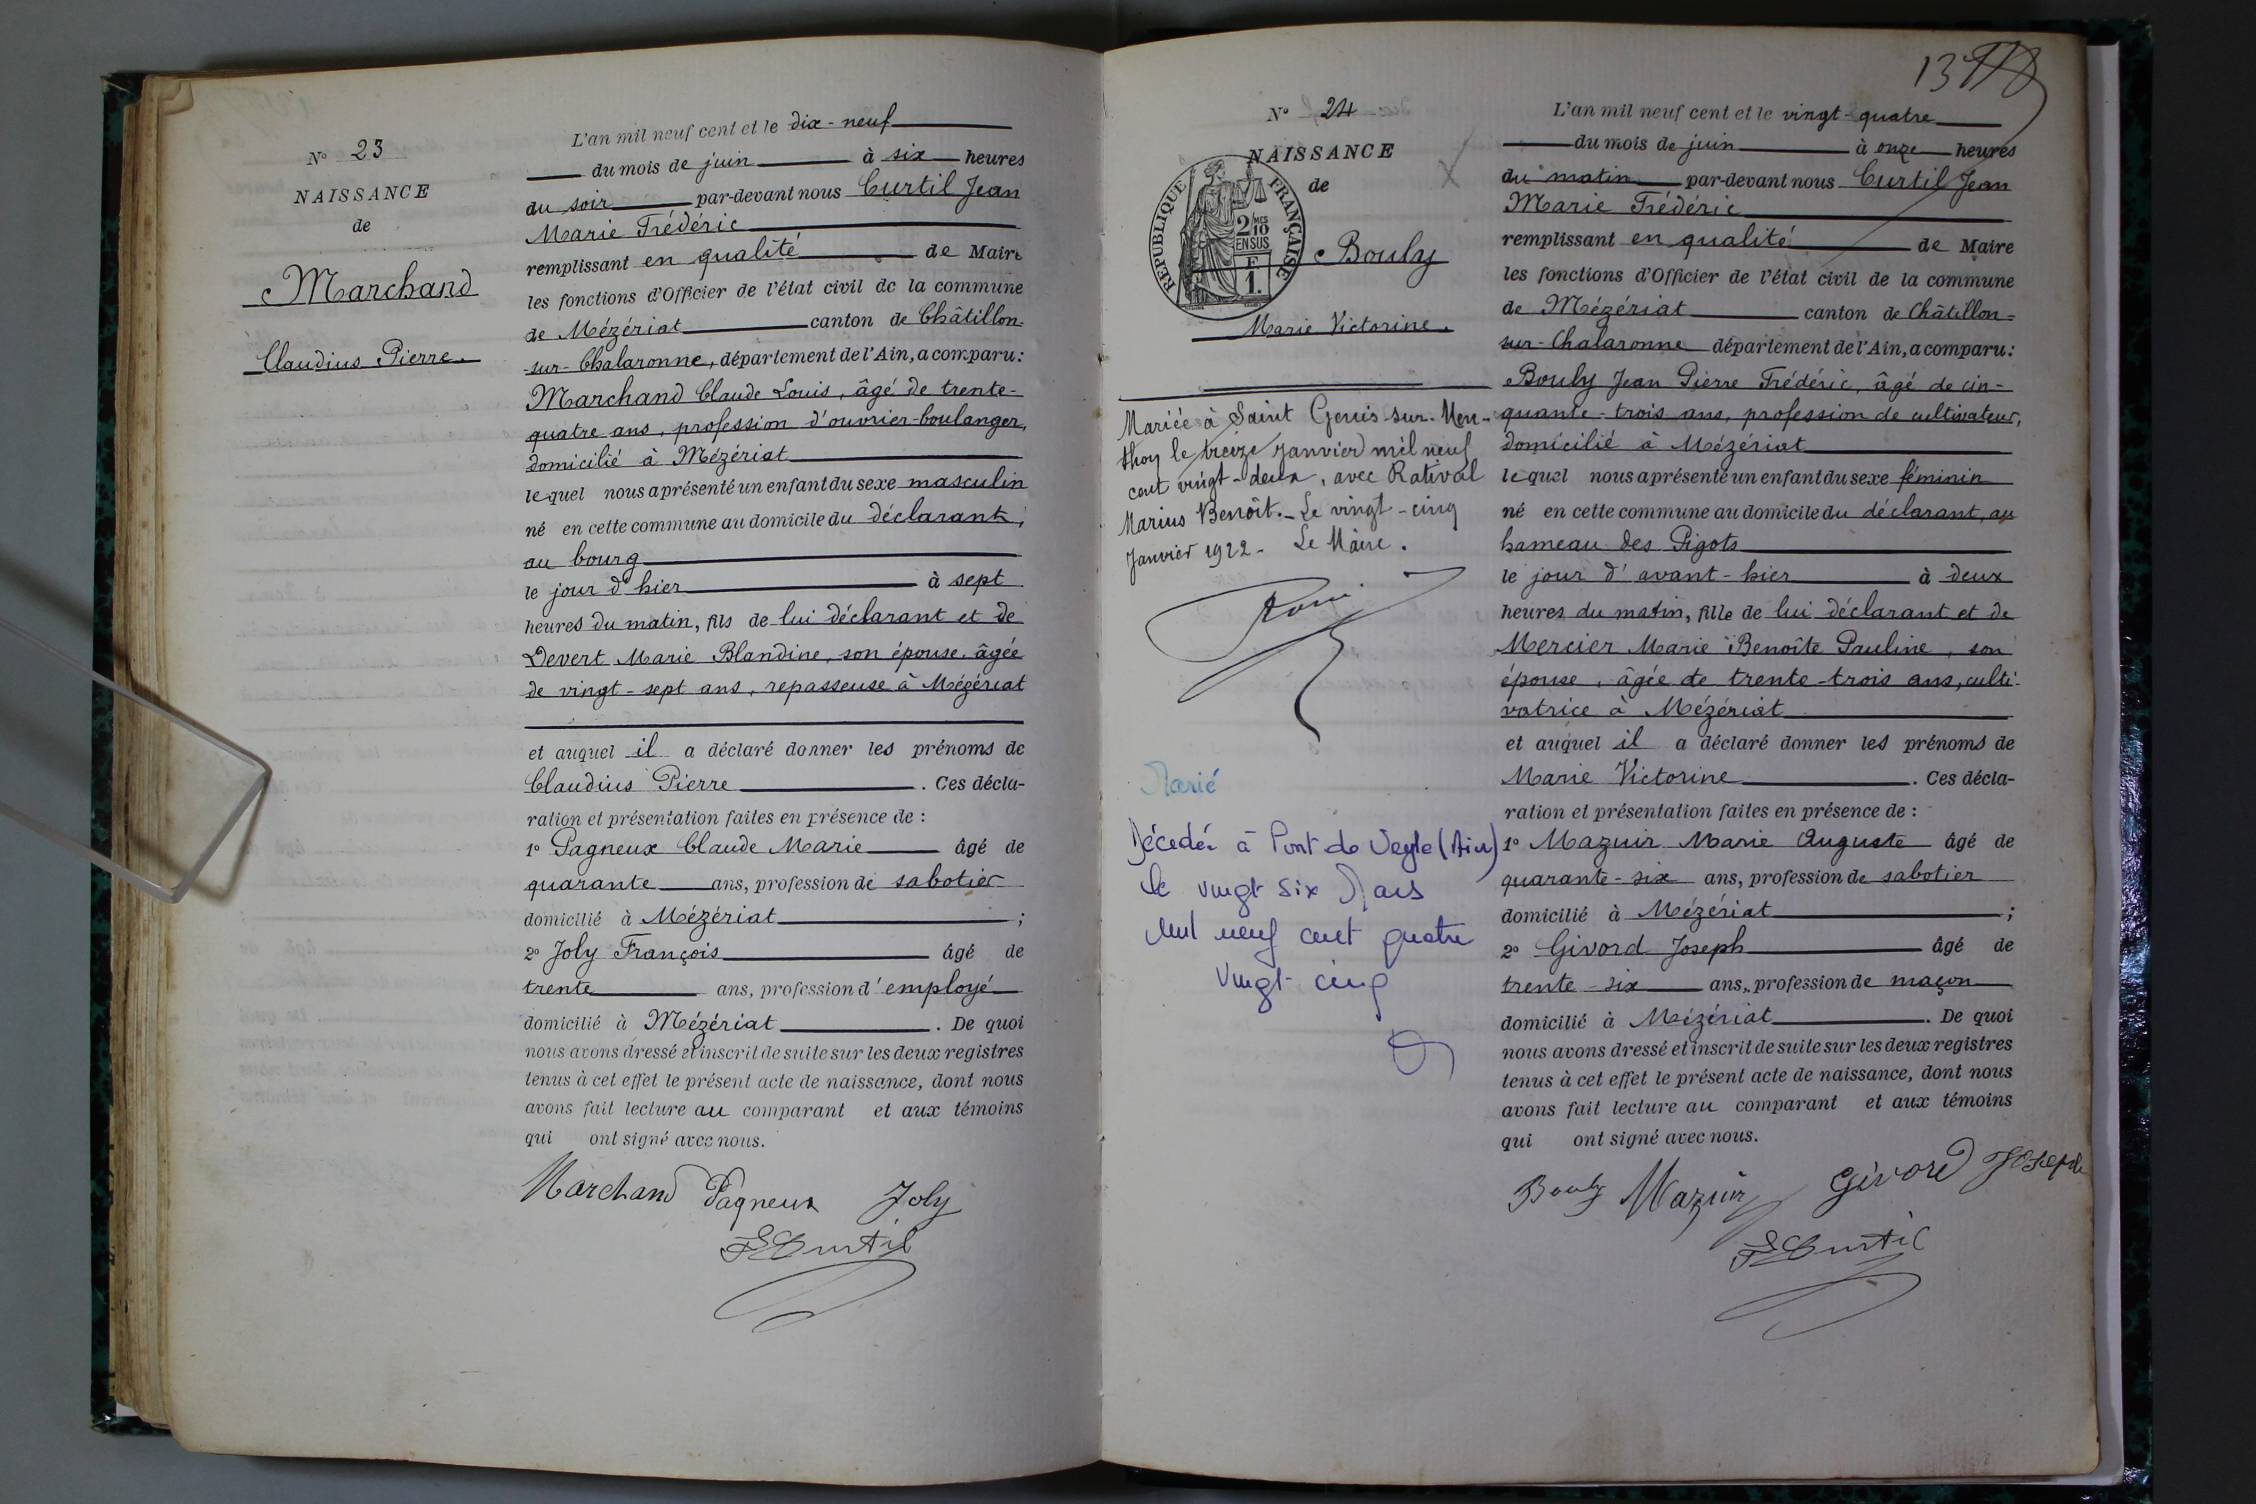 N° 23
NAISSANCE
de
Marchand
Claudius Pierre.
L'an mil neuf cent et le dix-neuf
du mois de juin à six heures
du soir par-devant nous Curtil Jean
Marie Frédéric
remplissant en qualité de Maire
les fonctions d'Officier de l'état civil de la commune
de Mézériat canton de Châtillon-
-sur-Chalaronne, département de l'Ain, a comparu:
Marchand Claude Louis, âgé de trente-
quatre ans, profession d'ouvrier-boulanger,
domicilié à Mézériat
lequel nous a présenté un enfant du sexe masculin
né en cette commune au domicile du déclarant,
au bourg
le jour d'hier à sept
heures du matin, fils de lui déclarant et de
Devert Marie Blandine, son épouse, âgée
de vingt-sept ans, repasseuse à Mézériat
et auquel il a déclaré donner les prénoms de
Claudius Pierre. Ces décla-
ration et présentation faites en présence de :
1° Pagneux Claude Marie âgé de
quarante ans, profession de sabotier
domicilié à Mézériat ;
2° Joly François âgé de
trente ans, profession d'employé
domicilié à Mézériat. De quoi
nous avons dressé et inscrit de suite sur les deux registres
tenus à cet effet le présent acte de naissance, dont nous
avons fait lecture au comparant et aux témoins
qui ont signé avec nous.
Marchand Pagneux Joly
Curtil
13
N° 24
NAISSANCE
de
REPUBLIQUE FRANÇAISE
2 MES
10
EN SUS
F
1.
Bouly
Marie Victorine.
Mariée à Saint Genis-sur-Men-
thon le treize janvier mil neuf
cent vingt-deux, avec Rativat
Marius Benoît. Le vingt-cinq
Janvier 1922 - Le Maire.
Marié
Décédée à Pont de Veyle (Ain)
le vingt six Mars
mil neuf cent quatre
vingt-cinq
L'an mil neuf cent et le vingt-quatre
du mois de juin à onze heures
du matin par-devant nous Curtil Jean
Marie Frédéric
remplissant en qualité de Maire
les fonctions d'Officier de l'état civil de la commune
de Mézériat canton de Châtillon-
sur-Chalaronne département de l'Ain, a comparu:
Bouly Jean Pierre Frédéric, âgé de cin-
quante-trois ans, profession de cultivateur,
domicilié à Mézériat
lequel nous a présenté un enfant du sexe féminin
né en cette commune au domicile du déclarant, au
hameau des Pigots
le jour d'avant-hier à deux
heures du matin, fille de lui déclarant et de
Mercier Marie Benoîte Pauline, son
épouse, âgée de trente-trois ans, culti-
vatrice à Mézériat
et auquel il a déclaré donner les prénoms de
Marie Victorine. Ces décla-
ration et présentation faites en présence de :
1° Mazuir Marie Auguste âgé de
quarante-six ans, profession de sabotier
domicilié à Mézériat ;
2° Givord Joseph âgé de
trente-six ans, profession de maçon
domicilié à Mézériat. De quoi
nous avons dressé et inscrit de suite sur les deux registres
tenus à cet effet le présent acte de naissance, dont nous
avons fait lecture au comparant et aux témoins
qui ont signé avec nous.
Bouly Mazuir Givord Joseph
Curtil